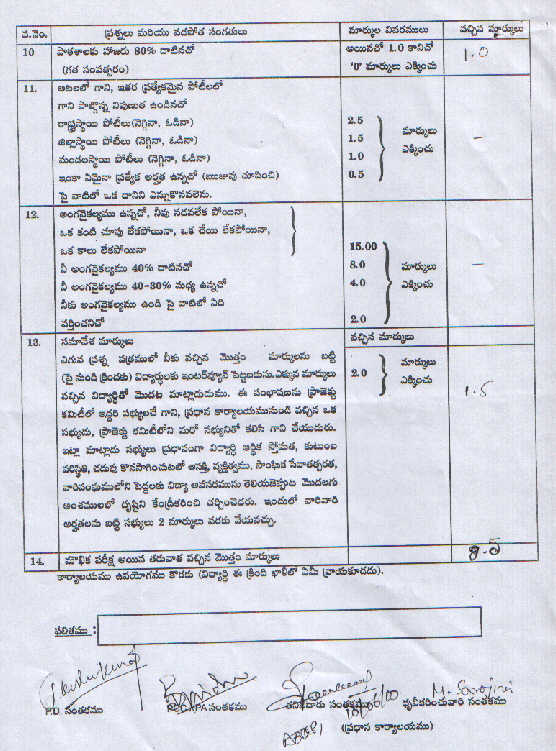 వ.నెం. ప్రశ్నలు మరియు వడపోత సంగతులు మార్కుల వివరములు వచ్చిన మార్కులు
10 పాఠశాలకు హాజరు 80% దాటినదో అయినతో 1.0 కానిచో 1.0
(గత సంవత్సరం) '0' మార్కులు ఎక్కించు
11. ఆటలలో గాని, ఇతర ప్రత్యేకమైన పోటీలలో
గాని పాల్గొన్న నిపుణుత ఉండినదో
రాష్ట్రస్థాయి పోటీలు(నెగ్గినా, ఓడినా) 2.5 మార్కులు
జిల్లాస్థాయి పోటీలు (నెగ్గినా, ఓడినా) 1.5 ఎక్కించు –
మండలస్థాయి పోటీలు (నెగ్గినా, ఓడినా) 1.0
ఇంకా ఏమైనా ప్రత్యేక అర్హత ఉన్నదో (ఋజువు చూపించి) 0.5
పై వాటిలో ఒక దానిని ఎన్నుకొనవలెను.
12. అంగవైకల్యము ఉన్నదో, నీవు నడవలేక పోయినా,
ఒక కంటి చూపు లేకపోయినా, ఒక చేయి లేకపోయినా,
ఒక కాలు లేకపోయినా 15.00
ఏ అంగవైకల్యము 40% దాటినదో 8.0 మార్కులు –
ఏ అంగవైకల్యము 40-30% మధ్య ఉన్నదో 4.0 ఎక్కించు
నీకు అంగవైకల్యము ఉండి పై వాటిలో ఏది
వర్తించనిదో 2.0
13. సమావేశ మార్కులు వచ్చిన మార్కులు
ఎగువ ప్రశ్న పత్రములో నీకు వచ్చిన మొత్తం మార్కులను బట్టి మార్కులు
(పై నుండి క్రిందకు) విద్యార్థులకు ఇంటర్‌వ్యూకి పెట్టబడును.ఎక్కువ మార్కులు 2.0 ఎక్కించు
వచ్చిన విద్యార్థితో మొదట మాట్లాడుదుము. ఈ సంభాషణను ప్రాజెక్టు 1.5
కమిటీలో ఇద్దరి సభ్యులచే గాని, ప్రధాన కార్యాలయమునుండి వచ్చిన ఒక
సభ్యుడు, ప్రాజెక్టు కమిటీలోని మరో సభ్యునితో కలిసి గాని చేయుదురు.
ఇట్లా మాట్లాడు సభ్యులు ప్రధానంగా విద్యార్థి ఆర్థిక స్తోమత, కుటుంబ
పరిస్థితి, చదువు కొనసాగించుటలో ఆసక్తి, వ్యక్తిత్వము, సాంఘిక సేవాతత్పరత,
వారిసంఘములోని పెద్దలకు విద్యా అవసరమును తెలియజెప్పుట మొదలగు
అంశములలో దృష్టిని కేంద్రీకరించి చర్చించెదరు. ఇందులో వారివారి
అర్హతలను బట్టి సభ్యులు 2 మార్కులు వరకు వేయవచ్చు.
14. మౌఖిక పరీక్ష అయిన తరువాత వచ్చిన మొత్తం మార్కులు 8.5
కార్యాలయము ఉపయోగము కొరకు (విద్యార్థి ఈ క్రింది ఖాళీలో ఏమీ వ్రాయకూడదు).
ఫలితము :
P.D సంతకము సంతకము సంతకము ధృవీకరించువారి సంతకము
(ప్రధాన కార్యాలయము)